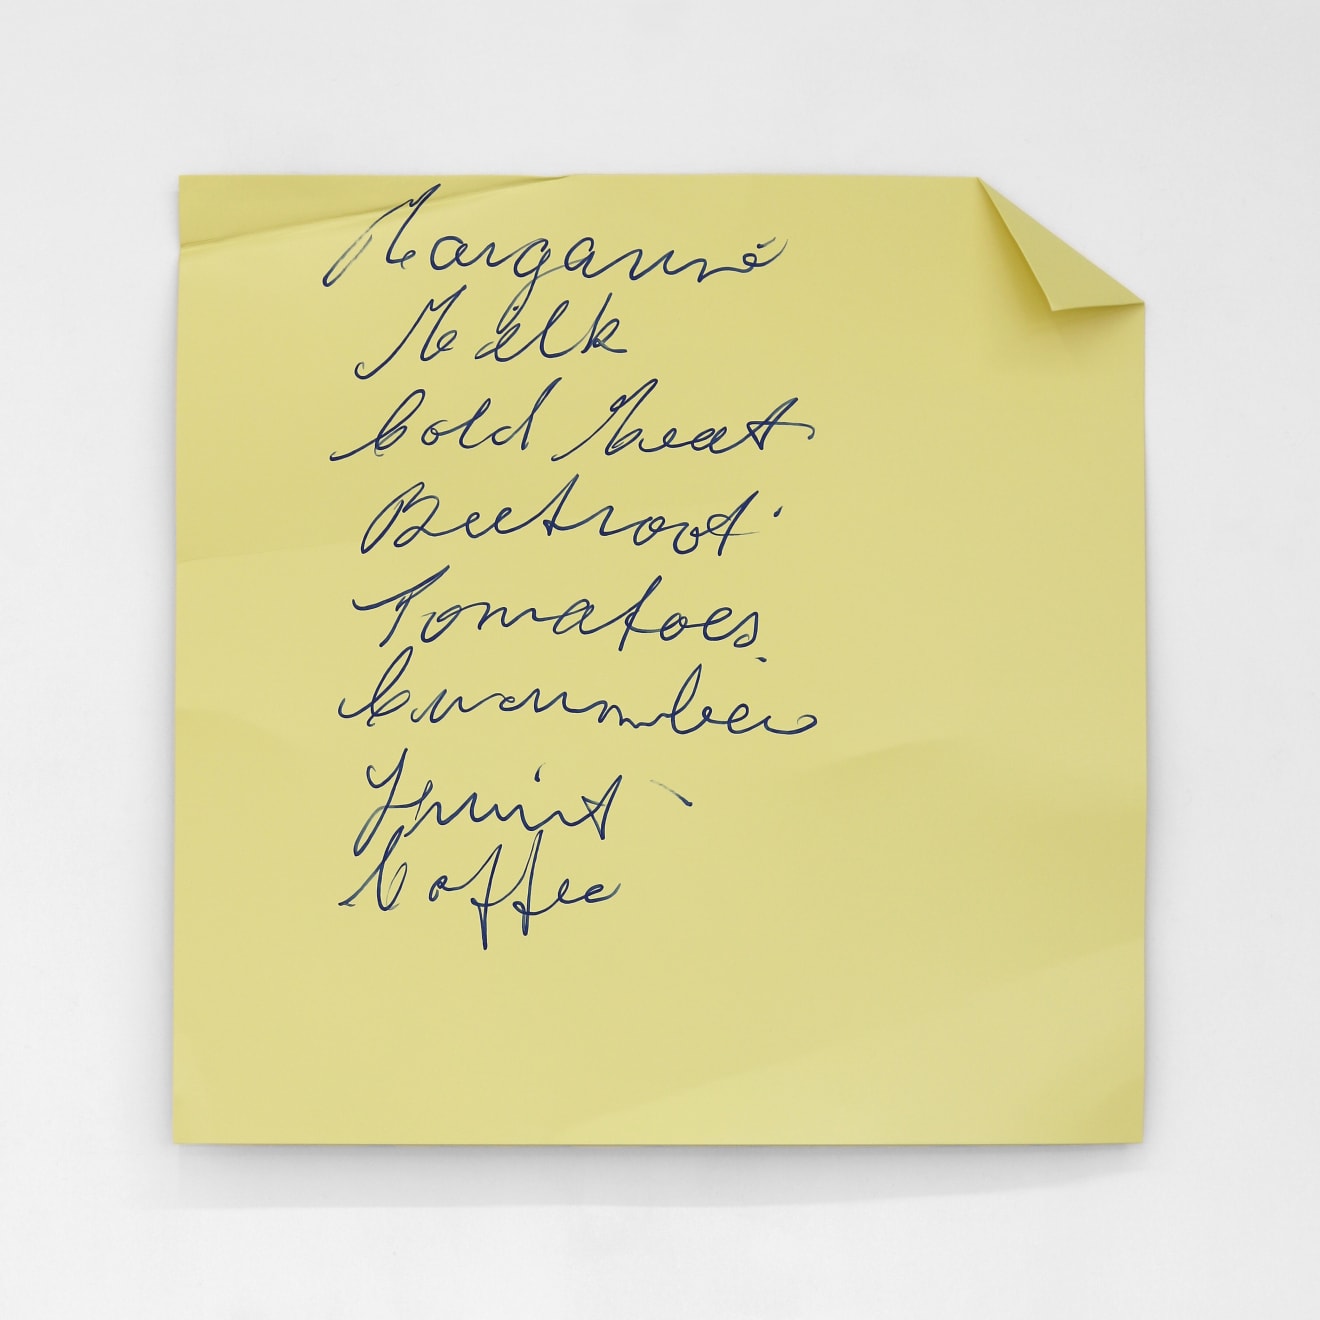 Margarine
Milk
Cold Meat
Beetroot
Tomatoes
Cucumber
Fruit
Coffee